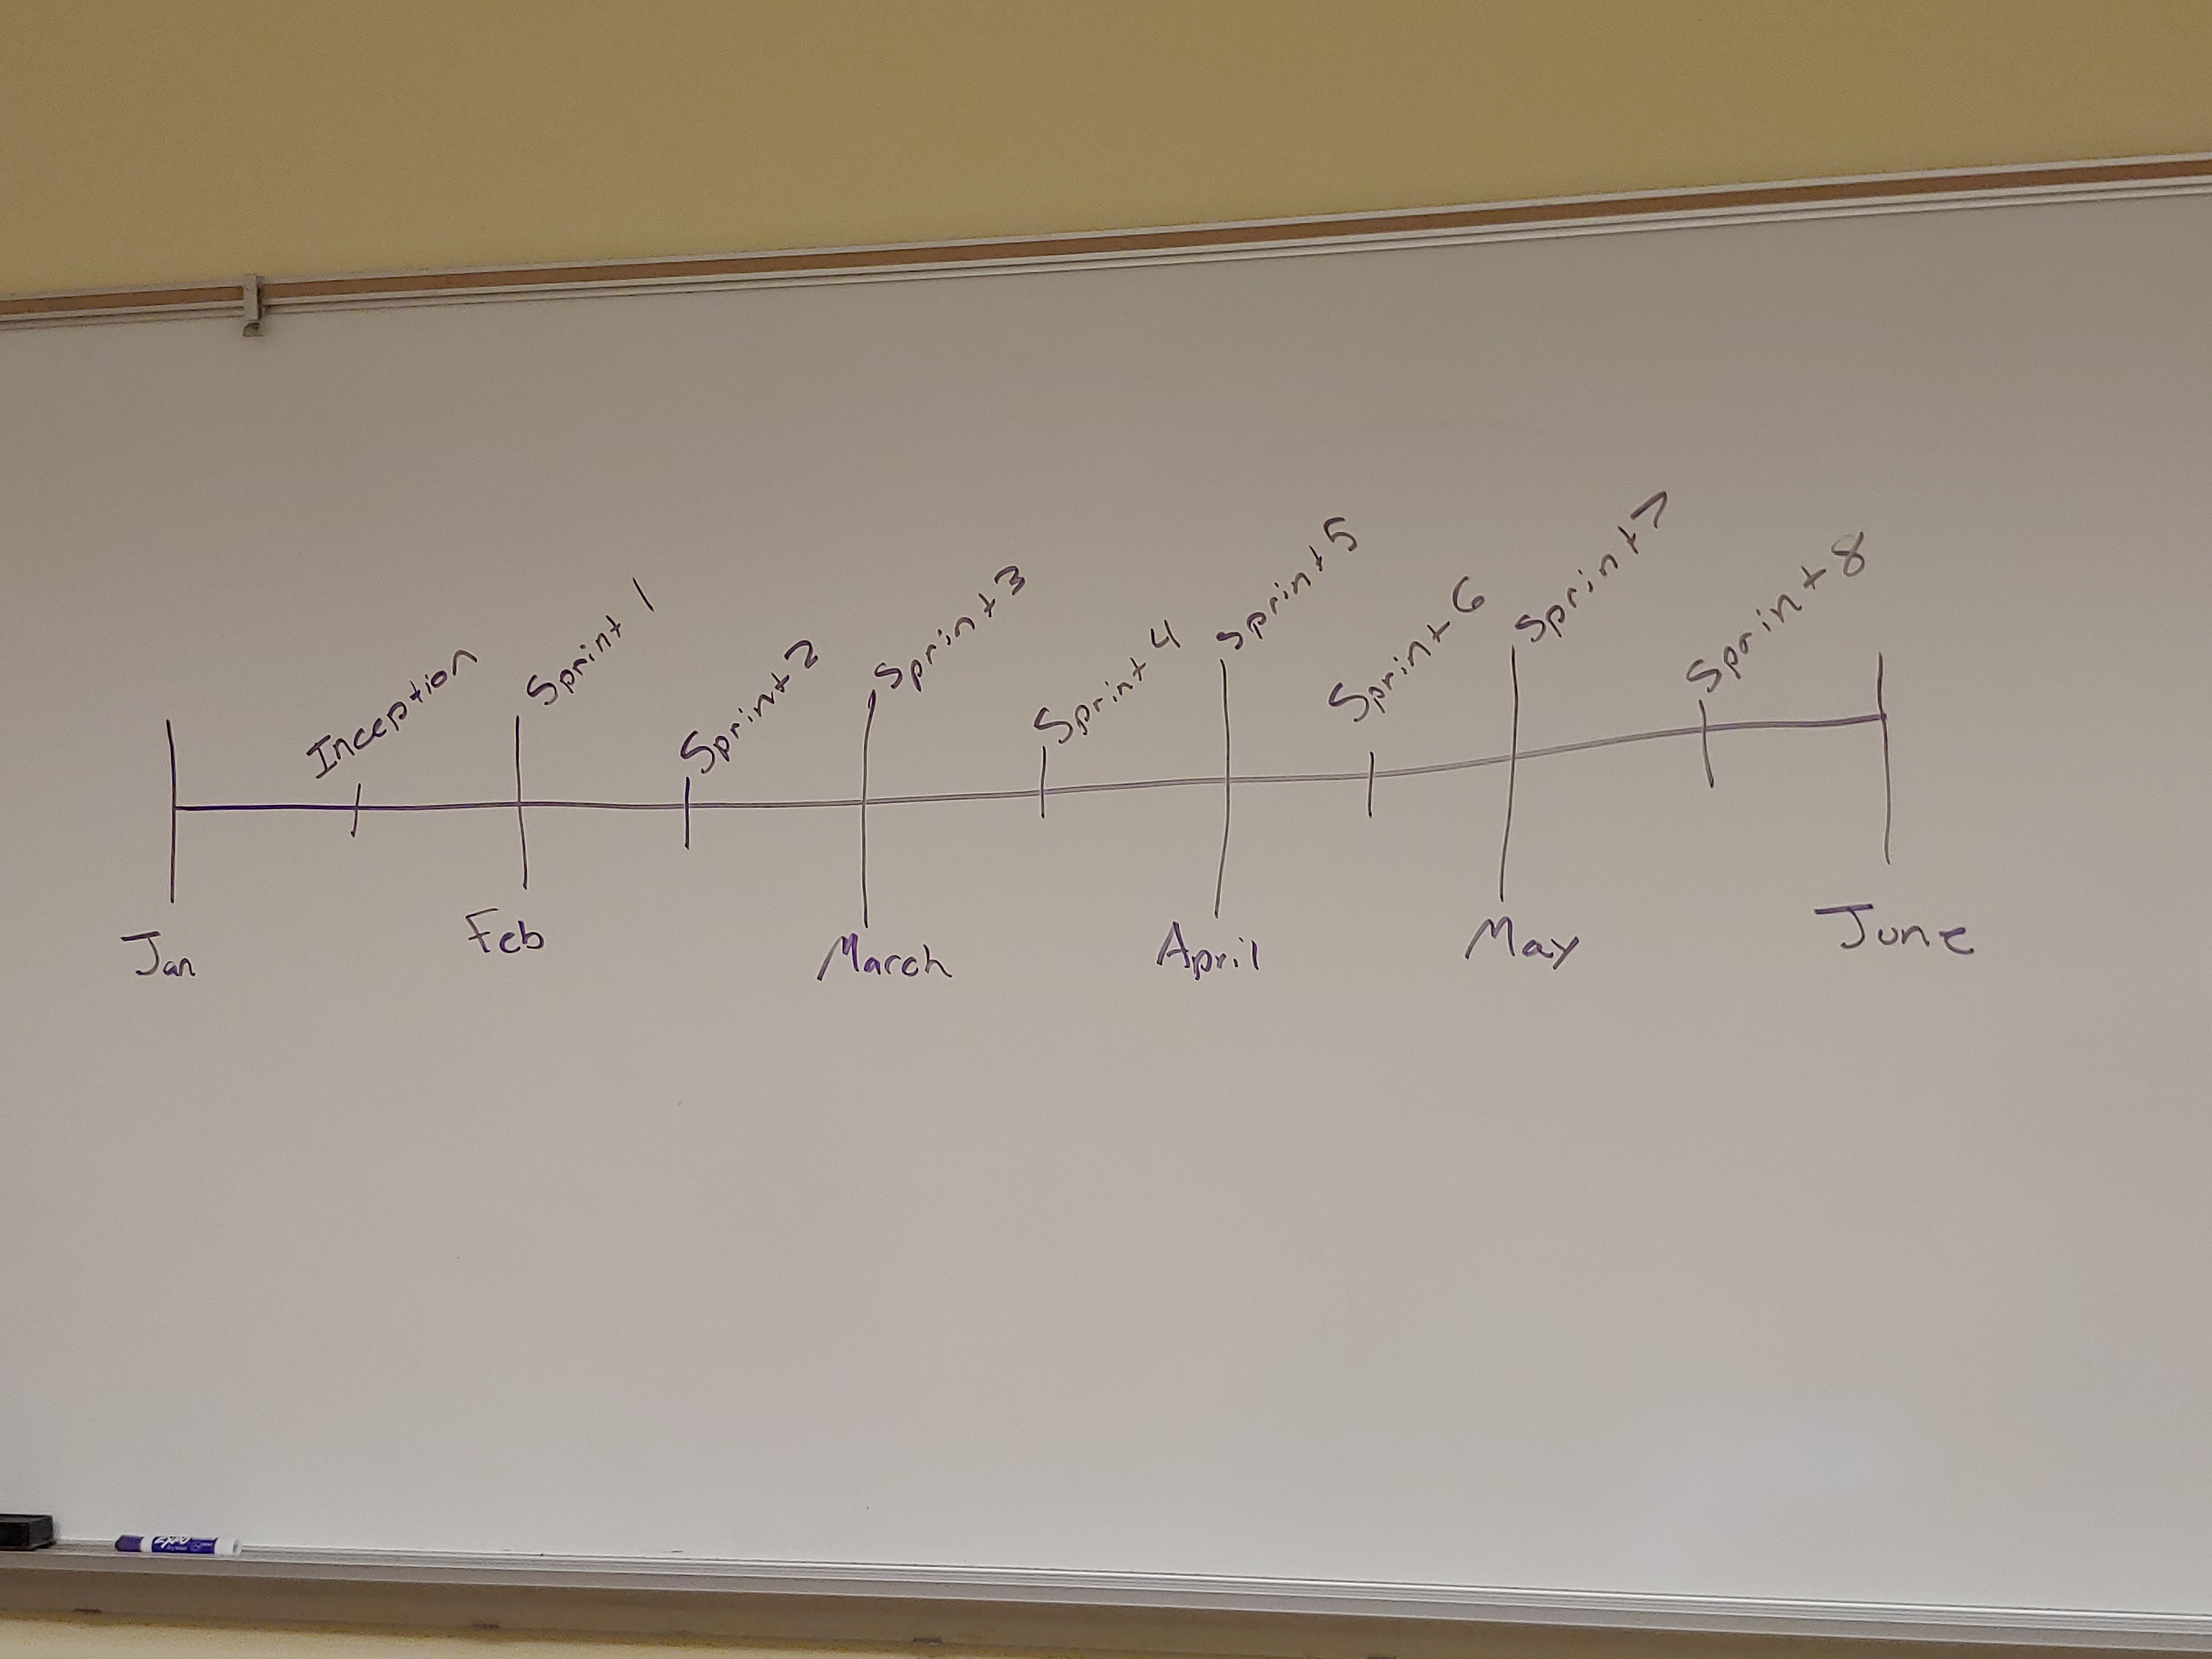 Inception
Sprint 1
Sprint 2
Sprint 3
Sprint 4
Sprint 5
Sprint 6
Sprint 7
Sprint 8
Jan
Feb
March
April
May
June
EXPO